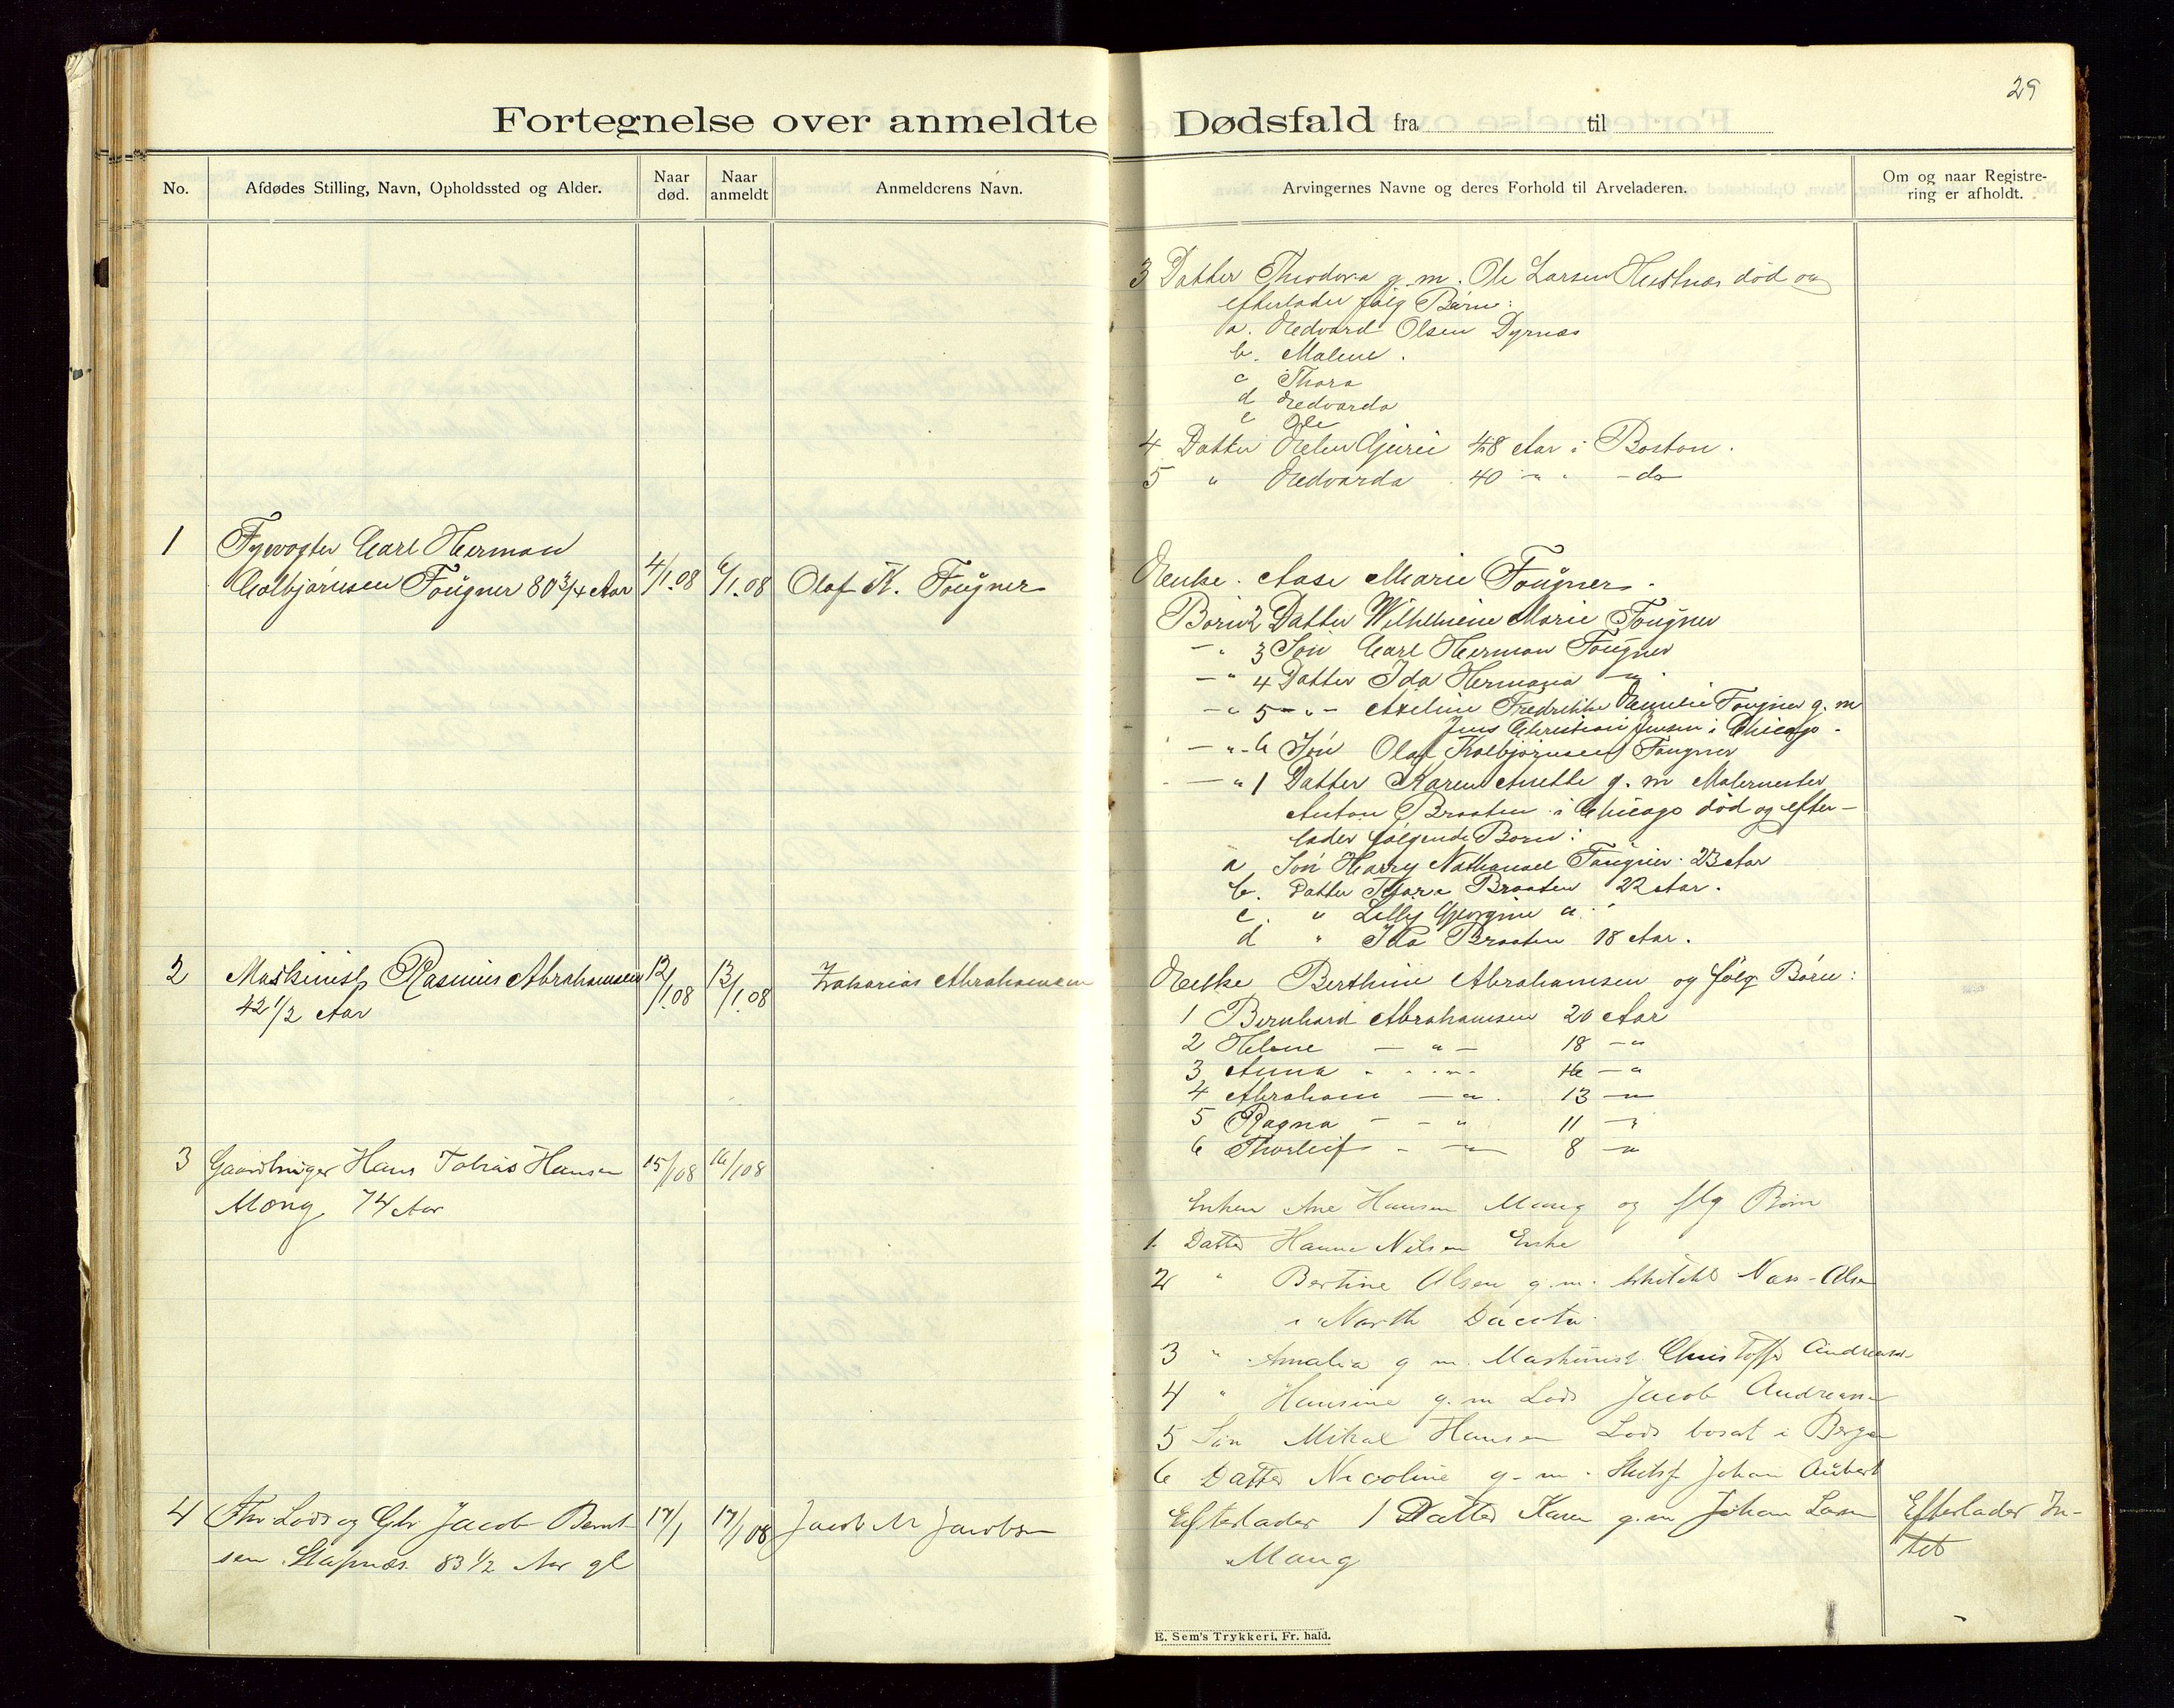 29
Fortegnelse over anmeldte Dødsfald fra til
No.
Afdødes Stilling, Navn, Opholdssted og Alder.
Naar død.
Naar anmeldt
Anmelderens Navn.
Arvingernes Navne og deres Forhold til Arveladeren.
Om og naar Registre-
ring er afholdt.
3 Datter Theodora g. m. Ole Larsen Hestnæs død og
efterlader følg Børn:
a. Edvard Olsen Dyrnæs
b. Malene.
c Thora
d Edvarda
e Ole
4 Datter Helen 48 Aar i Boston.
5 " Edvarda 40 - " - do
1 Fyrvogter Carl Herman
Colbjørnsen Fougner 80 3/4 Aar 4/1.08 6/1.08 Olaf K. Fougner
Enke. Aase Marie Fougner.
Børn 2 Datter Wilhelmine Marie Fougner
- " 3 Søn Carl Herman Fougner
- " 4 Datter Ida Hermana - "
- " 5 - " - Axeline Fredrikke Emelie Fougner g. m
Jens Christian Jensen i Chicago -
- " - 6 Søn Olaf Kolbjørnsen Fougner
- " 1 Datter Karen Anette g. m Malermester
Anton Braaten i Chicago død og efter-
lader følgende Børn:
a Søn Harry Nathanael Fougner 23 Aar
b. Datter Thora Braaten 22 Aar.
c. " Lilly Georgine "
d " Ida Braaten 18 Aar.
2 Maskinist Rasmus Abrahamsen 12/1.08 13/1.08 Zakarias Abrahamsen
42 1/2 Aar
Enke Berthine Abrahamsen og følg Børn:
1 Bernhard Abrahamsen 20 Aar
2 Helene - " - 18 - "
3 Anna - " - 16 - "
4 Abraham - " 13 - "
5 Ragna - " 11 - "
6 Thorleif - " 8 - "
3 Gaardbruger Hans Tobias Hansen 15/1 08 16/1 08
Mong 74 Aar
Enken Ane Hansen Mong og flg Børn
1. Datter Hanne Nilsen Enke
2 " Bertine Olsen g. m. Næss-Olsen
i North Dacota
3 " Amalia g m. Maskinist Christoffer Andreasen
4 " Hansine g. m Lods Jacob Andreassen
5 Søn Mikal Hansen Lods bosat i Bergen
6 Datter Nicoline g. m. Johan Aubert
4 Fhv Lods og Gbr Jacob Bernt- 17/1 17/1 08 Jacob M Jacobsen
sen Stapnæs. 83 1/2 Aar gl
Efterlader 1 Datter Karen g. m Johan Larsen
Mong
Efterlader In-
tet
E. Sem's Trykkeri, Fr. hald.